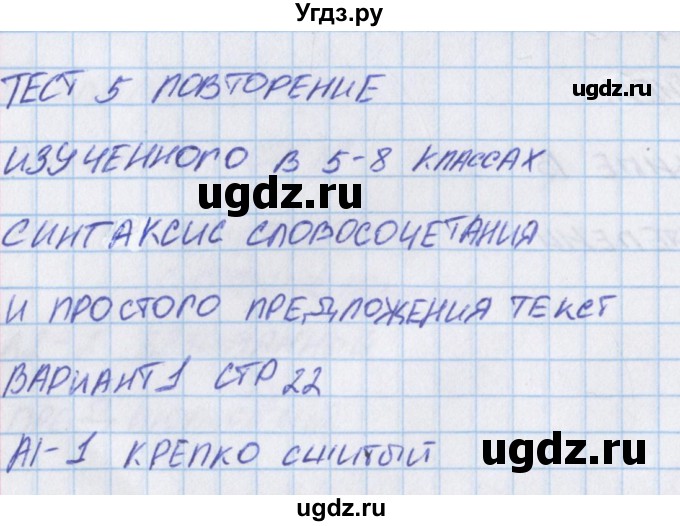 Угдз.ру
ТЕСТ 5 ПОВТОРЕНИЕ
ugdz.ru
ИЗУЧЕННОГО В 5-8 КЛАССАХ
ugdz.ru
СИНТАКСИС СЛОВОСОЧЕТАНИЯ
И ПРОСТОГО ПРЕДЛОЖЕНИЯ ТЕКСТ
ugdz.ru
ugdz.ru
ВАРИАНТ 1 СТР 22
А1-1 КРЕПКО СШИТЫЙ
ugdz.ru
ugdz.ru